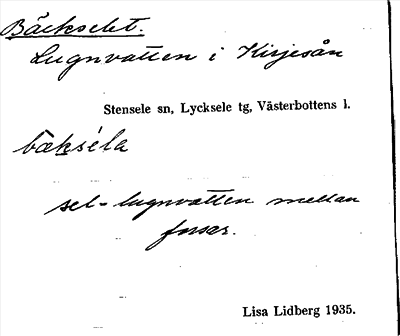 Bäckselet.
Lugnvatten i Kirjesån
Stensele sn, Lycksele tg, Västerbottens l.
bækséla
sel = lugnvatten mellan
forsar.
Lisa Lidberg 1935.